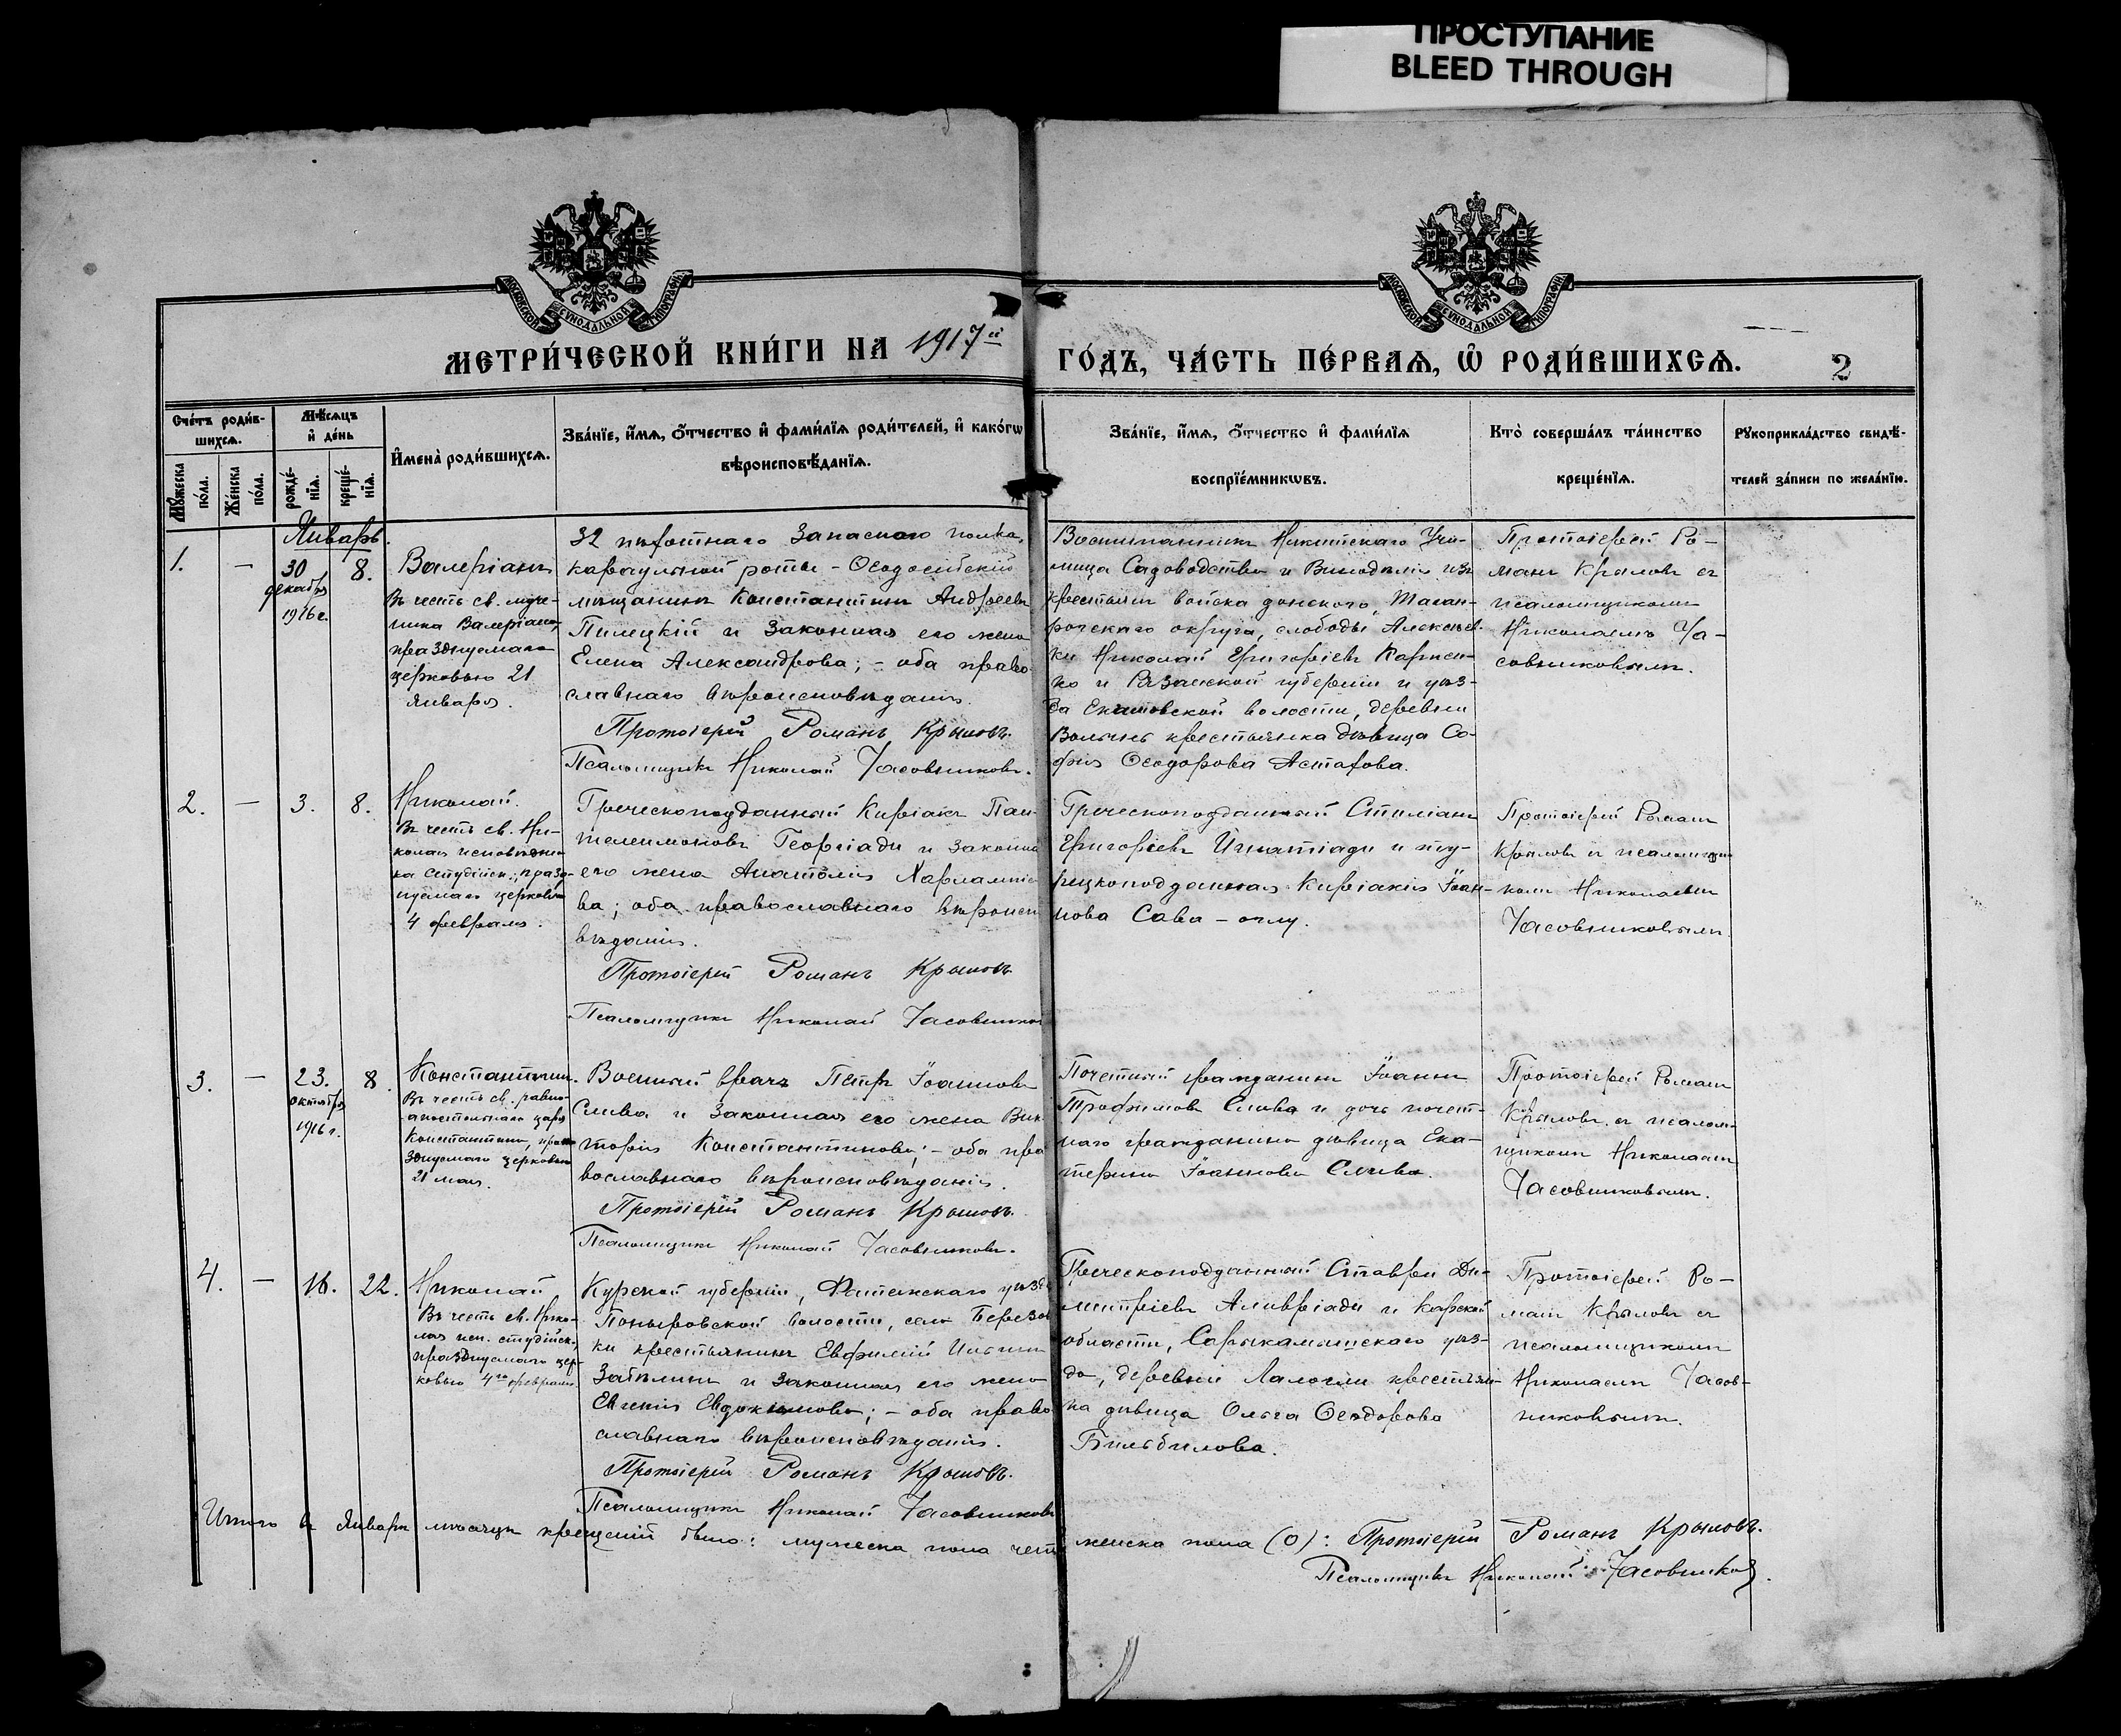 ПРОСТУПАНИЕ
BLEED THROUGH
МОСКОВСКОЙ СѴНОДАЛЬНОЙ ТИПОГРАФІИ
МОСКОВСКОЙ СѴНОДАЛЬНОЙ ТИПОГРАФІИ
МЕТРИ́ЧЕСКОЙ КНИ́ГИ НА 1917й ГО́ДЪ, ЧА́СТЬ ПЕ́РВАѦ, Ѽ РОДИ́ВШИХСѦ.
2
Сче́тъ роди́в-
шихсѧ.
Мꙋжеска по́ла.
Же́нска по́ла.
Мѣ́сѧцъ
и де́нь
рожде́-
нїѧ.
креще́-
нїѧ.
И҆мена̀ роди́вшихсѧ.
Зва́нїе, и҆́мѧ, ѻ҆́тчество и҆ фами́лїѧ роди́телей, и҆ како́гѡ
вѣроисповѣ́данїѧ.
Зва́нїе, и҆́мѧ, ѻ҆́тчество и҆ фами́лїѧ
воспрїе́мникѡвъ.
Кто̀ соверша́лъ та́инство
креще́нїѧ.
Рꙋкоприкла́дство свидѣ́-
телей за́писи по жела́нїю.
Январь.
1.
—
30
декабря
1916 г.
8.
Валеріанъ
Въ честь св. муче-
ника Валеріана,
празднуемаго
церковью 21
января.
32 пѣхотнаго Запаснаго полка,
караульной роты - Ѳеодосійскій
мѣщанинъ Константинъ Андреевъ
Пилецкій и Законная его жена
Елена Александрова; - оба право-
славнаго вѣроисповѣданія.
Протоіерей Романъ Крыловъ.
Псаломщикъ Николай Часовниковъ.
Воспитанникъ Никитскаго Учи-
лища Садоводства и Винодѣлія изъ
крестьянъ войска донского, Таган-
рогскаго округа, слободы Алексѣев-
ки Николай Григоріевъ Карпен-
ко и Рязанской губерніи и уѣз-
да Екимовской волости, деревни
Волынь крестьянка дѣвица Со-
фія Ѳеодорова Астафова.
Протоіерей Ро-
манъ Крыловъ съ
псаломщикомъ
Николаемъ Ча-
совниковымъ.
2.
—
3.
8.
Николай.
Въ честь св. Ни-
колая исповѣдни-
ка Студійск., празд-
нуемаго церковью
4 февраля.
Греческоподданный Киріакъ Пан-
телеимоновъ Георгіади и Законная
его жена Анатолія Харлампіе-
ва; оба православнаго вѣроиспо-
вѣданія.
Протоіерей Романъ Крыловъ
Псаломщикъ Николай Часовников
Греческоподданный Стиліанъ
Григоріевъ Игнатіади и ту-
рецкоподданная Киріакія Іоан-
нова Сава - оглу.
Протоіерей Романъ
Крыловъ съ псаломщи-
комъ Николаемъ
Часовниковымъ.
3.
—
23.
октября
1916 г.
8.
Константинъ.
Въ честь св. равно-
апостольнаго царя
Константина, пра-
зднуемаго церковью
21 мая.
Военный врачъ Петръ Іоанновъ
Слива и Законная его жена Вик-
торія Константинова; - оба пра-
вославнаго вѣроисповѣданія.
Протоіерей Романъ Крыловъ.
Псаломщикъ Николай Часовниковъ.
Почетный гражданинъ Іоаннъ
Трофимовъ Слива и дочь почет-
наго гражданина дѣвица Ека-
терина Іоаннова Слива.
Протоіерей Романъ
Крыловъ съ псалом-
щикомъ Николаемъ
Часовниковымъ.
4.
—
16.
22.
Николай
Въ честь св. Нико-
лая исп. студійск.,
празднуемаго цер-
ковью 4го февраля.
Курской губерніи, Фатежскаго уѣзда
Поныровской волости, села Березов-
ки крестьянинъ Евфимій Ильинъ
Забѣлинъ и Законная его жена
Евгенія Евдокимова; - оба право-
славнаго вѣроисповѣданія.
Протоіерей Романъ Крыловъ.
Псаломщикъ Николай Часовниковъ
Греческоподданный Ставри Ди-
митріевъ Аливріади и Карской
области, Сарыкамышскаго уѣз-
да, деревни Лалогли крестьян-
ка дѣвица Ольга Ѳеодорова
Бильбилова.
Протоіерей Ро-
манъ Крыловъ съ
псаломщикомъ
Николаемъ Часов-
никовымъ.
Итого въ Январѣ мѣсяцѣ крещеній было: мужеска пола чет женска пола (0): Протоіерей Романъ Крыловъ.
Псаломщикъ Николай Часовников.